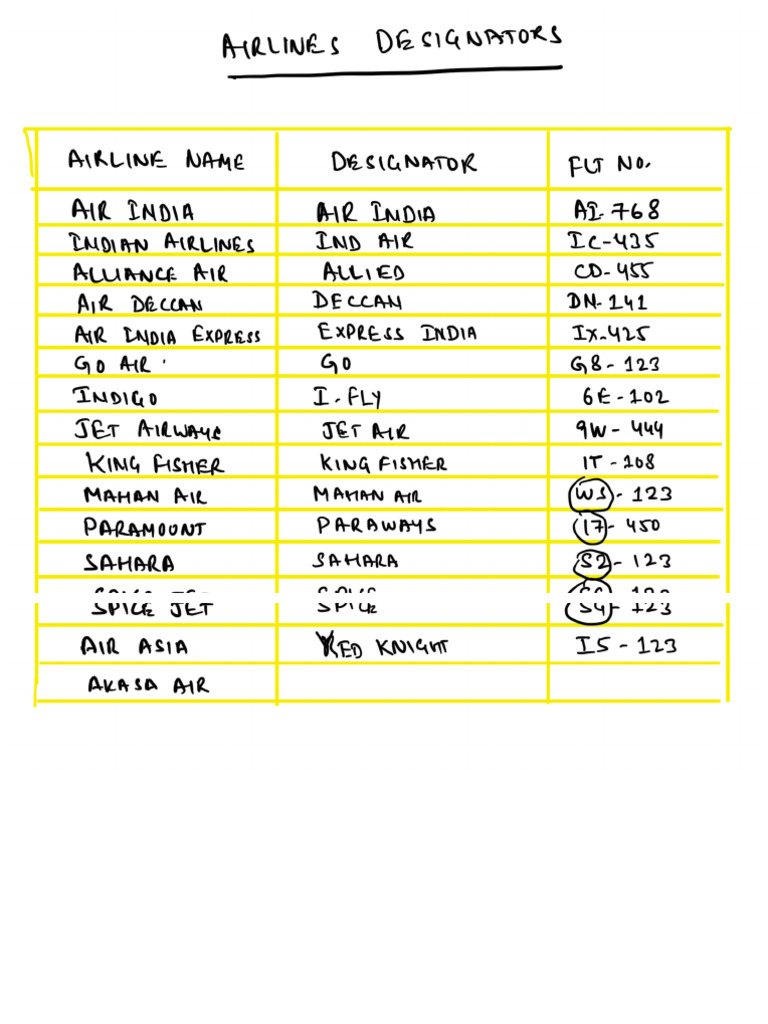 AIRLINES DESIGNATORS
AIRLINE NAME DESIGNATOR FLT NO.
AIR INDIA AIR INDIA AI-768
INDIAN AIRLINES IND AIR IC-435
ALLIANCE AIR ALLIED CD-455
AIR DECCAN DECCAN DN-141
AIR INDIA EXPRESS EXPRESS INDIA IX-425
GO AIR GO G8-123
INDIGO I-FLY 6E-102
JET AIRWAYS JET AIR 9W-444
KING FISHER KING FISHER IT-208
MAHAN AIR MAHAN AIR W5-123
PARAMOUNT PARAWAYS I7-450
SAHARA SAHARA S2-123
SPICE JET SPICE SG-123
AIR ASIA RED KNIGHT I5-123
AKASA AIR